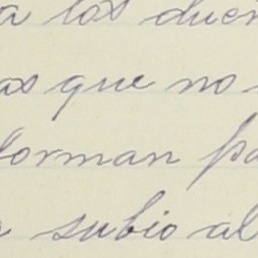 a los dueñ
as que no
forman pa
subio al